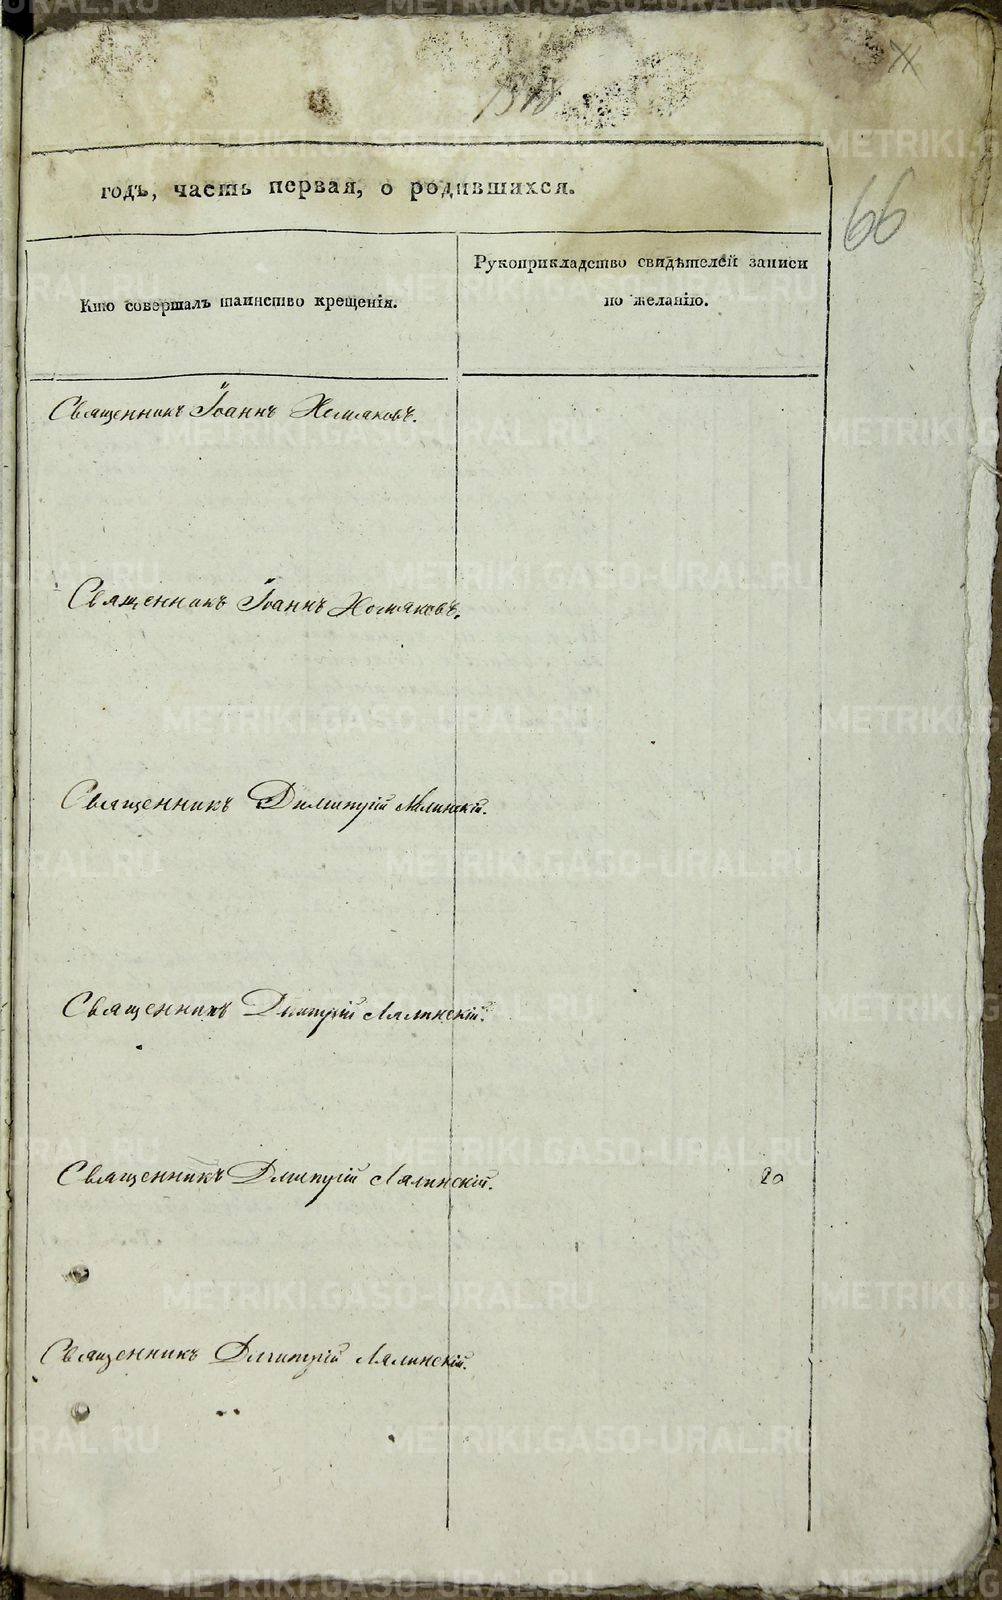 66
годъ, часть первая, о родившихся.
Кто совершалъ таинство крещенія.
Рукоприкладство свидѣтелей записи
по желанію.
Священникъ Іоаннъ Хомяковъ.
Священникъ Іоаннъ Хомяковъ.
Священникъ Димитрій Лялинскій.
Священникъ Дмитрій Лялинскій.
Священникъ Дмитрій Лялинскій.
20
Священникъ Дмитрій Лялинскій.
METRIKI.GASO-URAL.RU